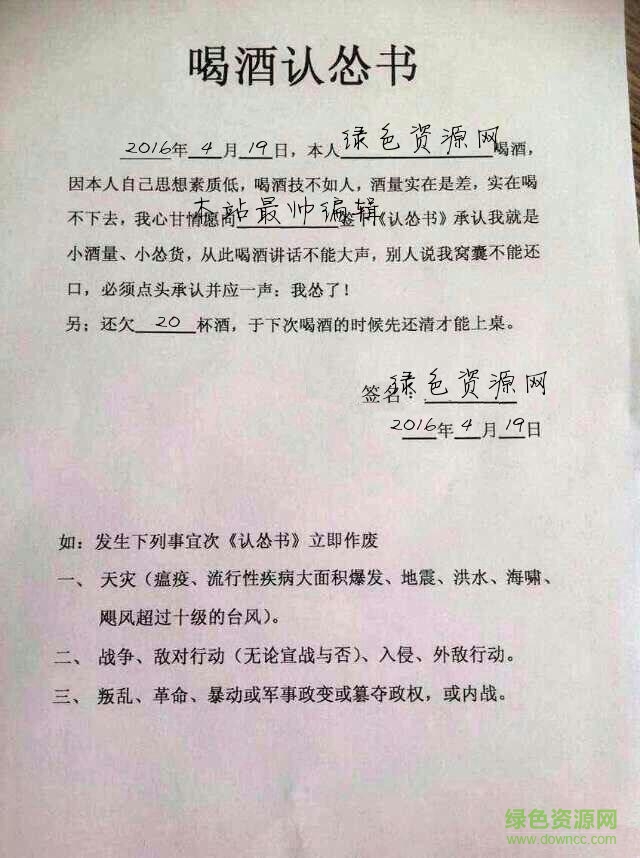 喝酒认怂书
2016年 4 月 19 日，本人 绿色资源网 喝酒，
因本人自己思想素质低，喝酒技不如人，酒量实在是差，实在喝
不下去，我心甘情愿向 本站最帅编辑 签《认怂书》承认我就是
小酒量、小怂货，从此喝酒讲话不能大声，别人说我窝囊不能还
口，必须点头承认并应一声：我怂了！
另；还欠 20 杯酒，于下次喝酒的时候先还清才能上桌。
签名：绿色资源网
2016年 4 月 19日
如：发生下列事宜次《认怂书》立即作废
一、天灾（瘟疫、流行性疾病大面积爆发、地震、洪水、海啸、
飓风超过十级的台风）。
二、战争、敌对行动（无论宣战与否）、入侵、外敌行动。
三、叛乱、革命、暴动或军事政变或篡夺政权，或内战。
绿色资源网
www.downcc.com